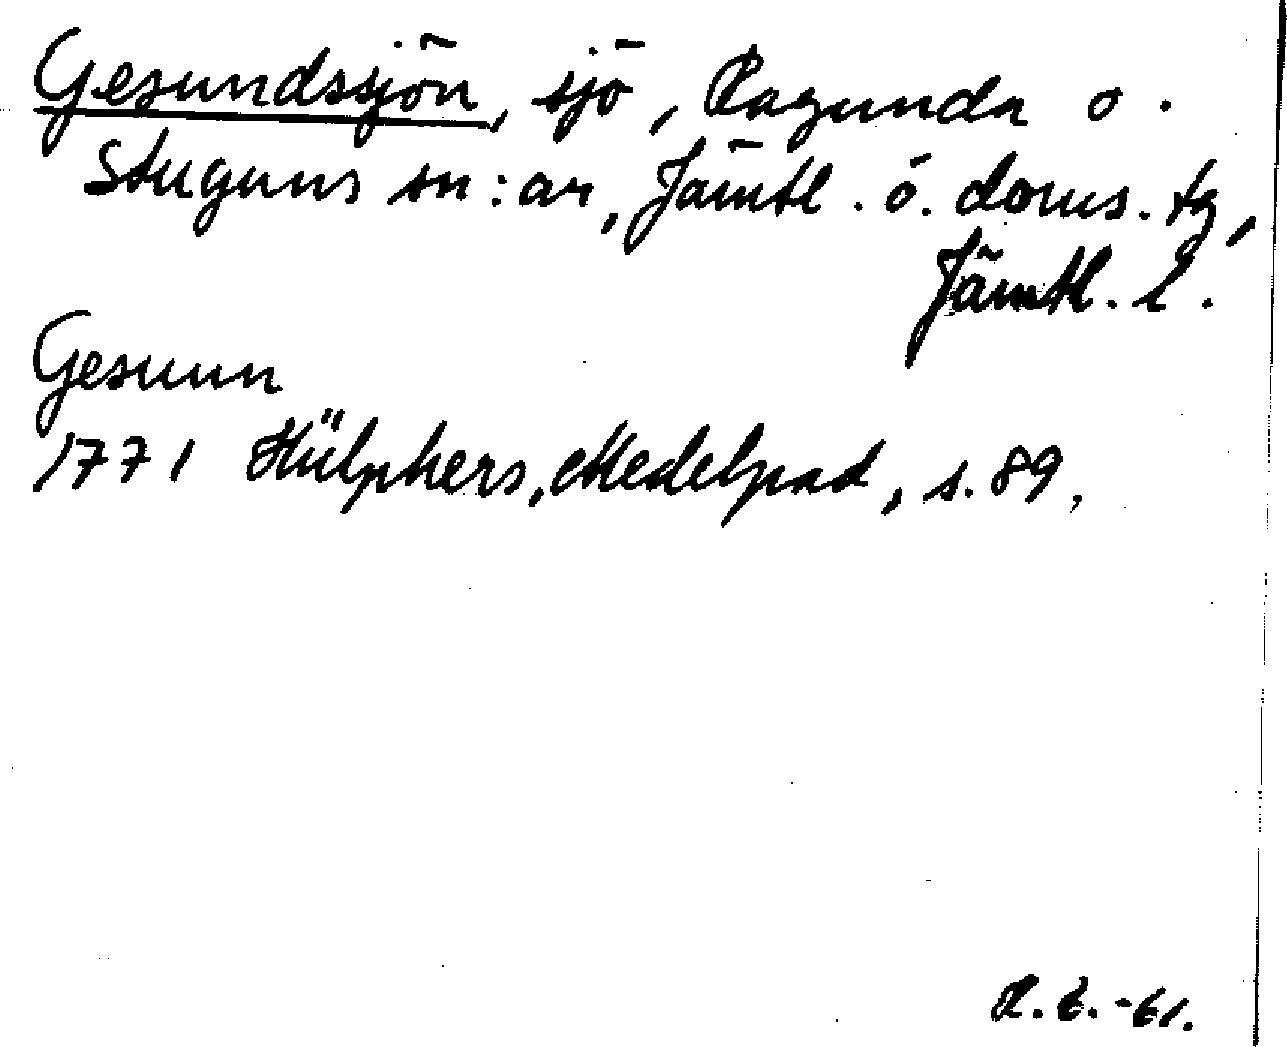 Gesundssjön, sjö, Ragunda o.
Stuguns sn:ar, Jämtl. ö. doms. tg,
Jämtl. l.
Gesunn
1771 Hülphers, Medelpad, s. 89.
-61.